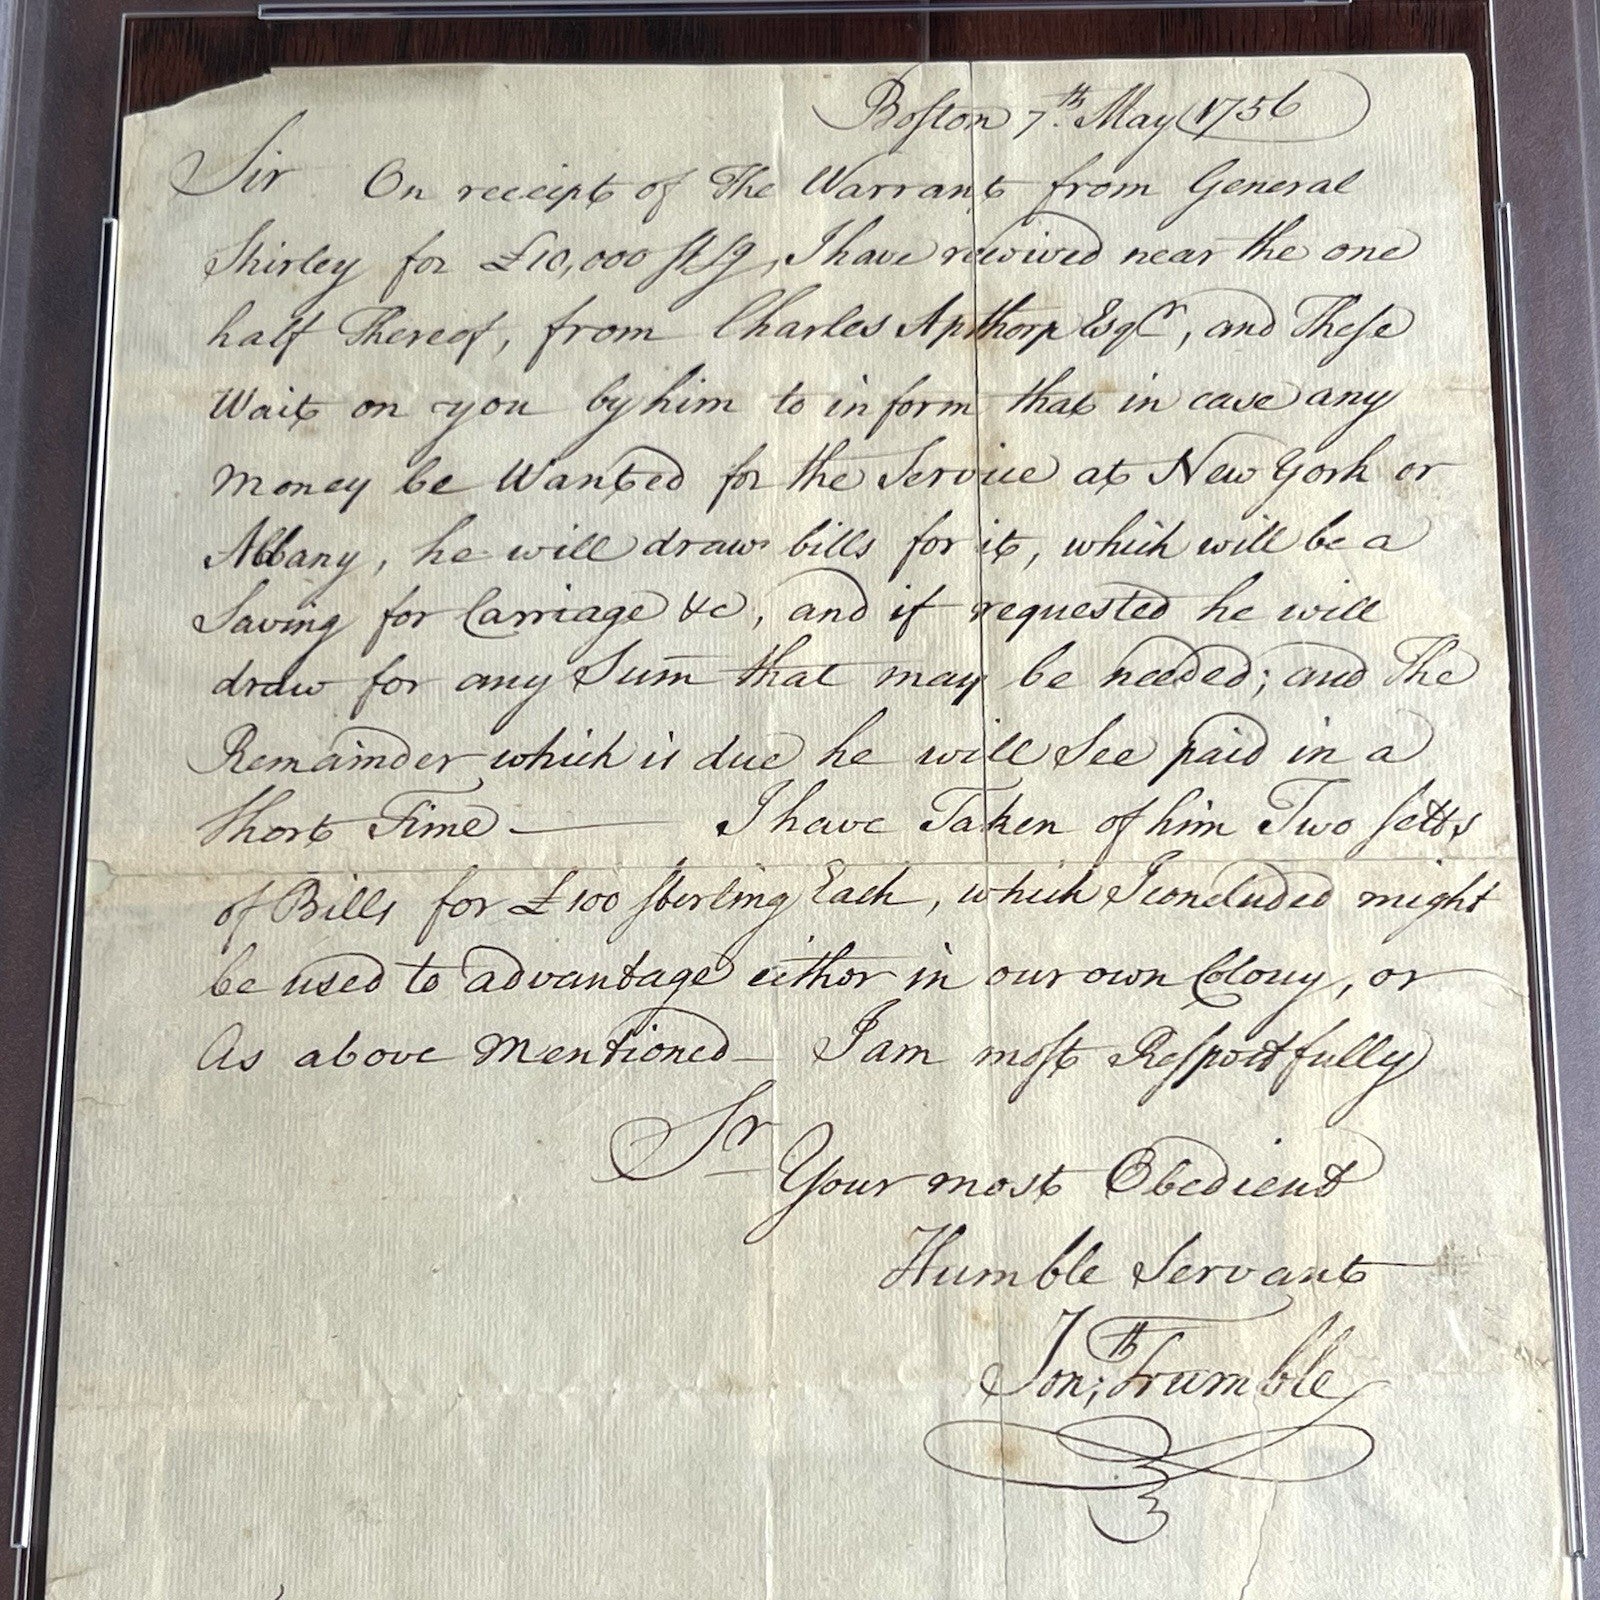 Boston 7.th May 1756
Sir On receipt of The Warrant from General
Shirley for £10,000 stsg, I have received near the one
half Thereof, from Charles Apthorp Esqr, and These
Wait on you by him to inform that in case any
money be Wanted for the Service at New York or
Albany, he will draw bills for it, which will be a
Saving for Carriage &c, and if requested he will
draw for any Sum that may be needed; and The
Remainder which is due he will See paid in a
Short Time — I have Taken of him Two setts
of Bills for £100 sterling Each, which I concluded might
be used to advantage either in our own Colony, or
As above mentioned — I am most Respectfully
Sr
Your most Obedient
Humble Servant
Jon;th Trumble